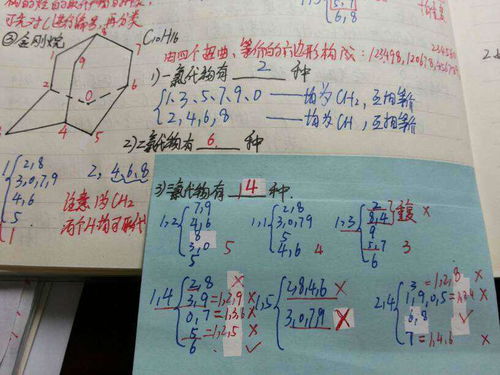 可先对C进行编号，再分类
③金刚烷
C10H16
由四个扭曲，等价的六边形构成：123498, 120678,
1)一氯代物有 2 种
{1、3、5、7、9、0 ——均为CH2，互相等价
2、4、6、8 ——均为CH，互相等价
2)二氯代物有 6 种
1 {2,8
3,0,7,9
4,6
5
1
2, 4,6,8
注意1为CH2
两个H均可取代
3)三氯代物有 14 种
1,2 {7,9
4,6
8
3,0
5
5
1,1 {2,8
3,0,7,9
5
4,6 4
1,3 {2
8,4 重复 X
9
5,7
6
3
1,4 {2,8 X
3,9 =1,2,9 X
0,7 =1,3,6 X
5 =1,2,5 X
6 ✓
1,5 {2,8,4,6 X
3,0,7,9 X
2,4 {3 =1,2,8 X
1,9,0,5 =1,2,4 X
6,8 ✓
7 =1,4,6 X
5,7
6,8